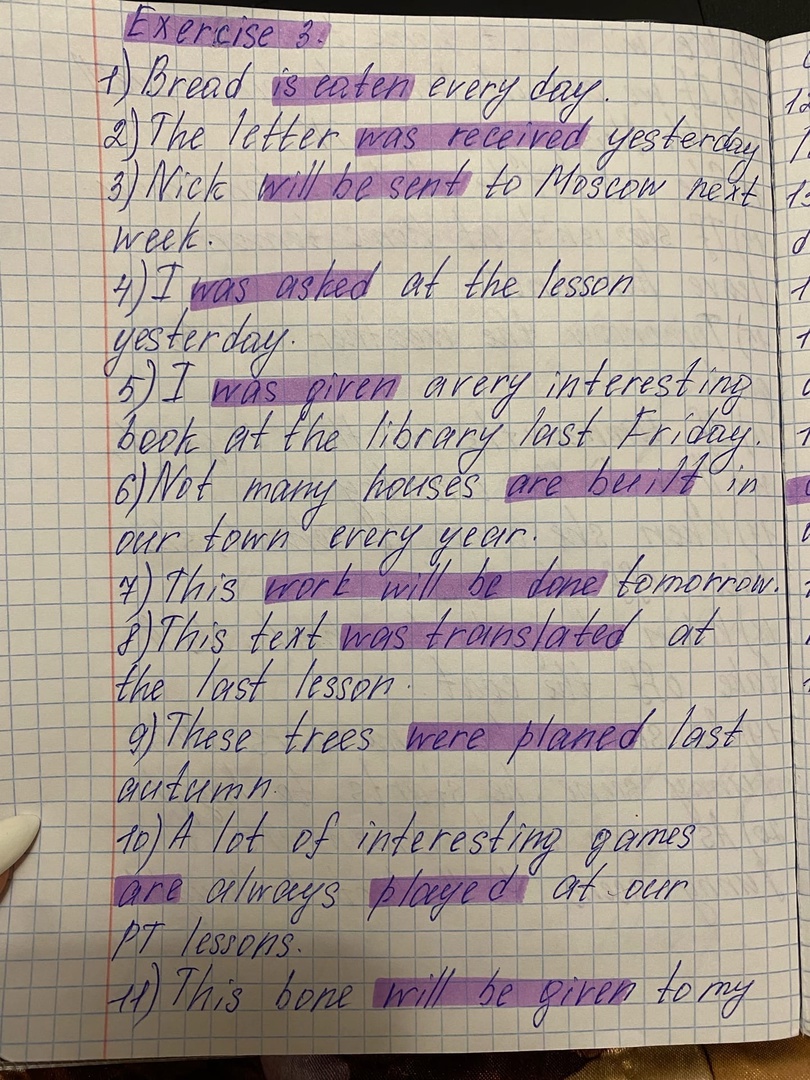 Exercise 3.
1) Bread is eaten every day.
2) The letter was received yesterday
3) Nick will be sent to Moscow next
week.
4) I was asked at the lesson
yesterday.
5) I was given a very interesting
book at the library last Friday.
6) Not many houses are built in
our town every year.
7) This work will be done tomorrow.
8) This text was translated at
the last lesson.
9) These trees were planed last
autumn.
10) A lot of interesting games
are always played at our
PT lessons.
11) This bone will be given to my